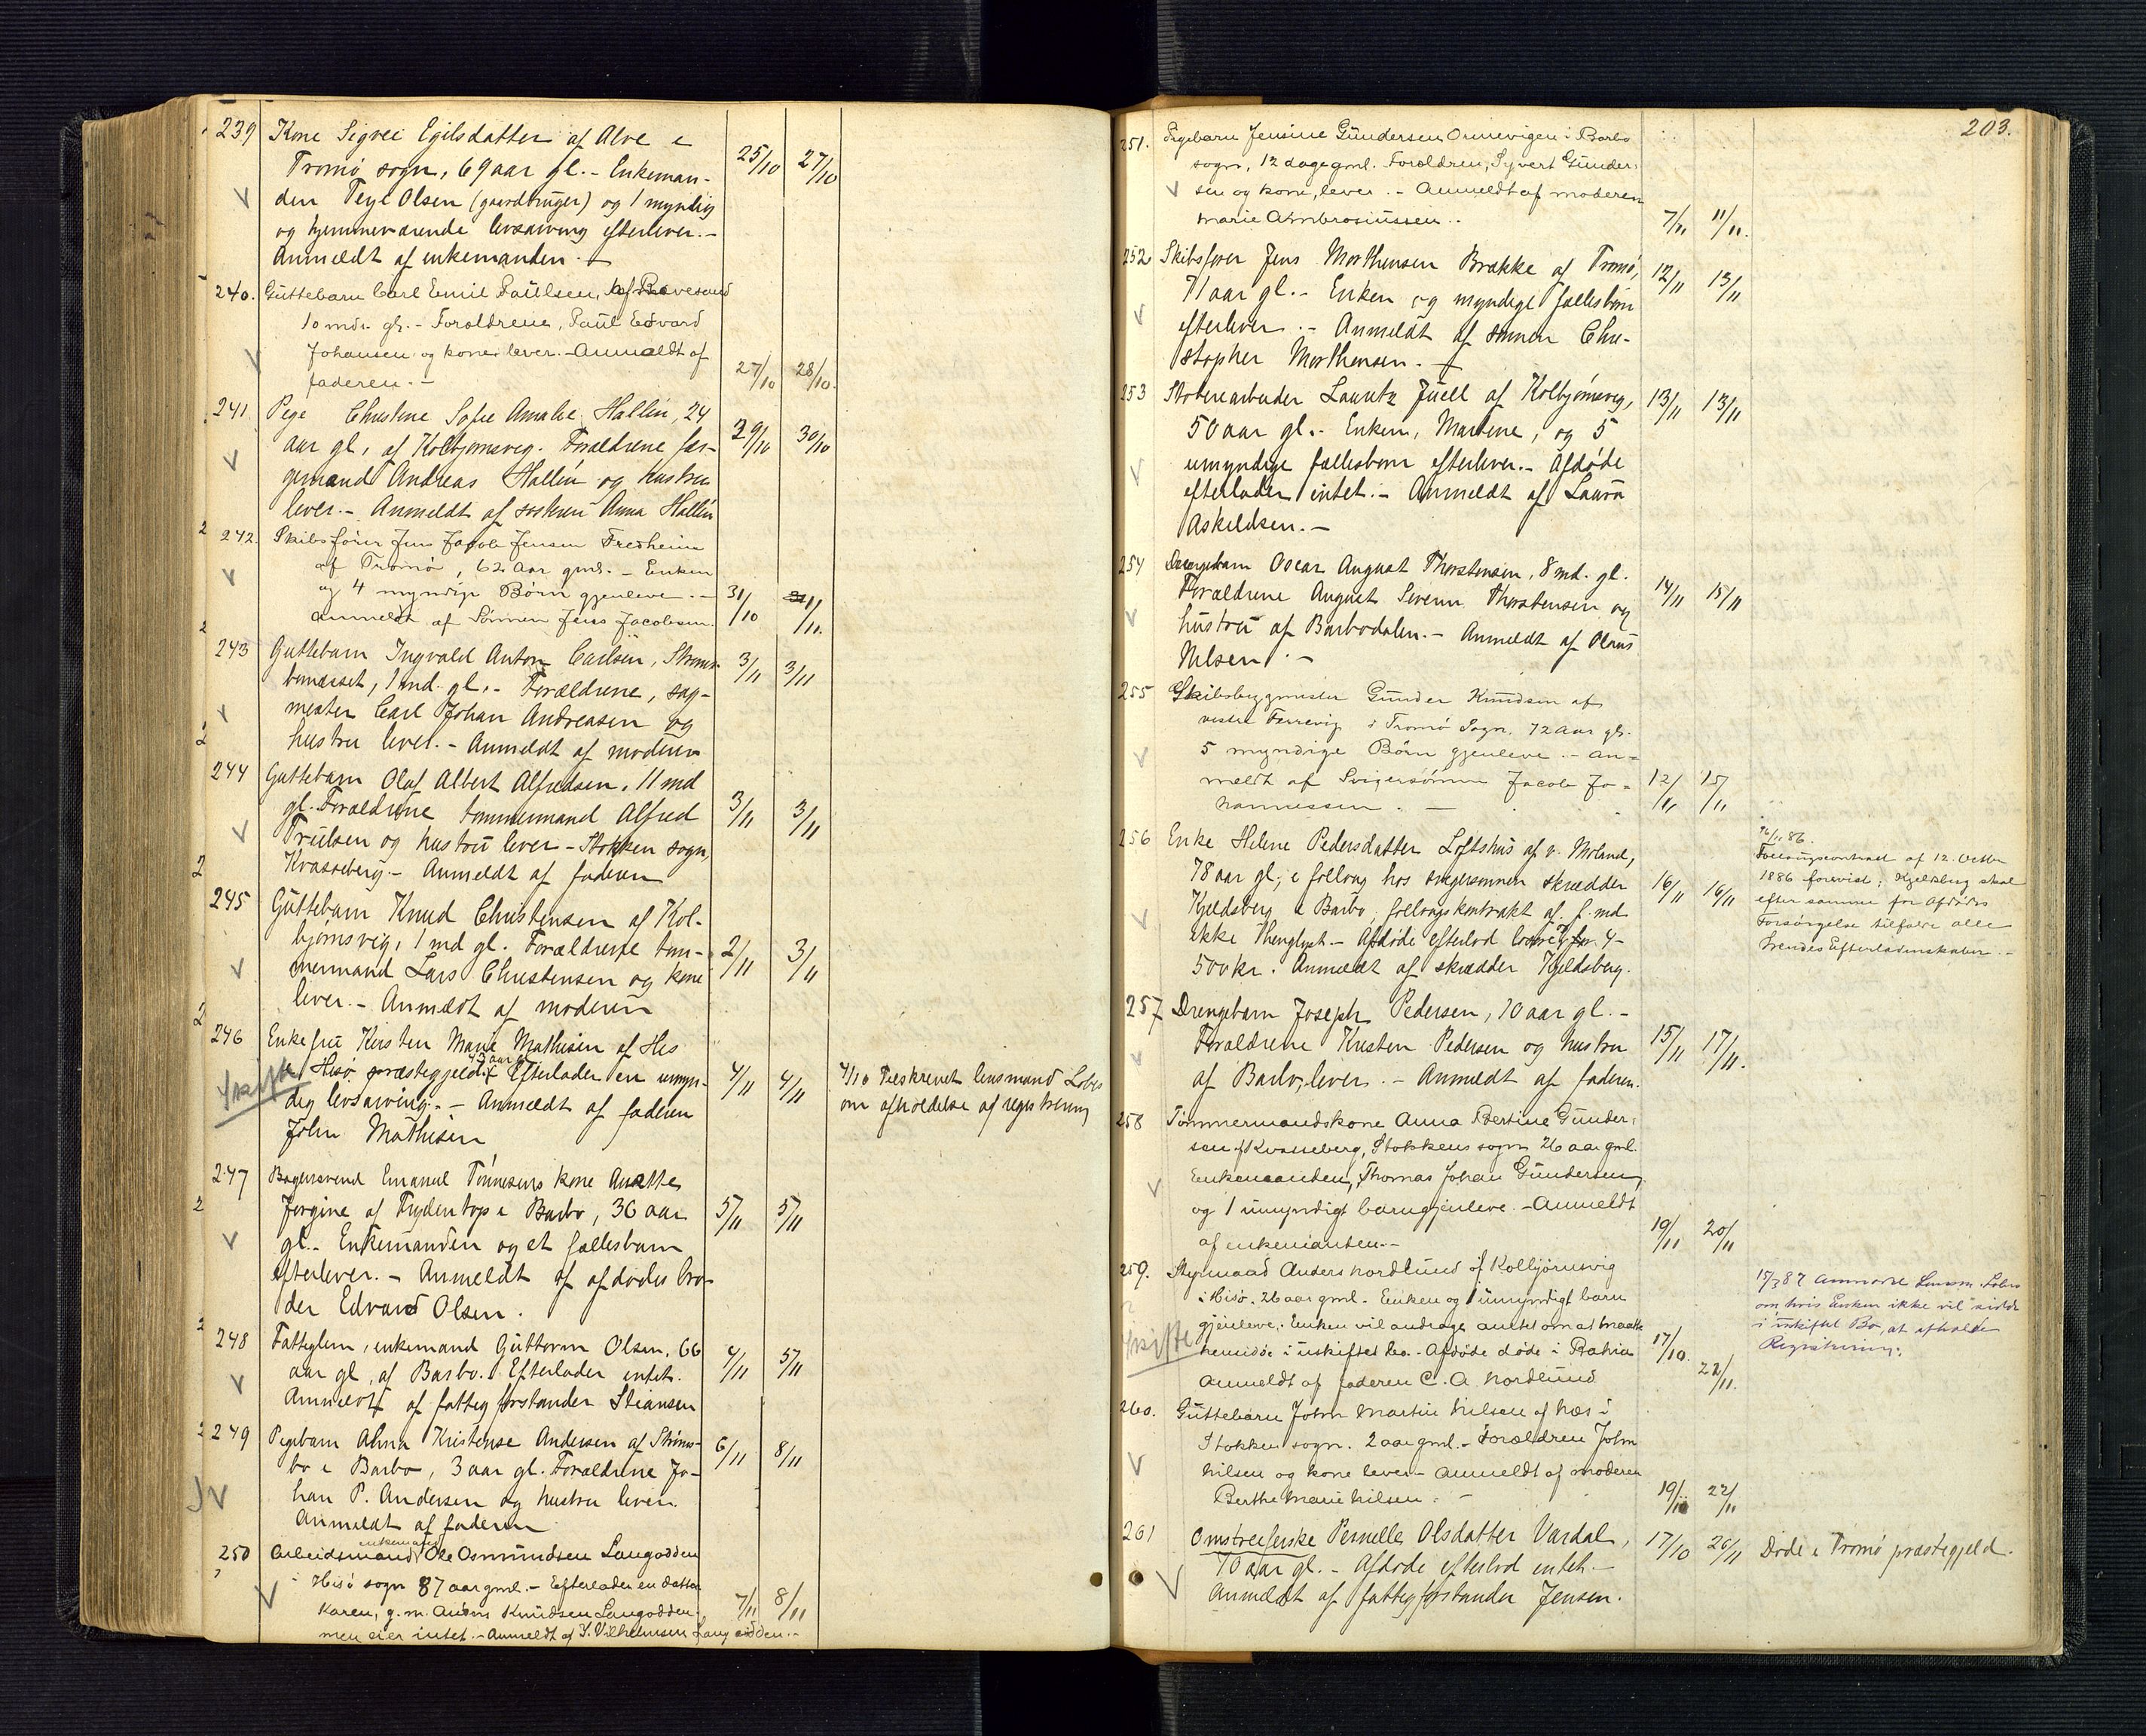 239 Kone Sigvei Egilsdatter af Alve i
Tromø sogn, 69 aar gl. - Enkeman-
den Terje Olsen (gaardbruger) og 1 myndig
og hjemmeværende livsarving efterlever. -
Anmeldt af enkemanden. -
25/10 27/10
240. Guttebarn Carl Emil Paulsen, af Revesand
10 mdr. gl. - Forældrene, Paul Edvard
Johansen og kone lever. - Anmeldt af
faderen. -
27/10 28/10.
241. Pige Christine Sofie Amalie Hallin, 24
aar gl, af Kolbjørnsvig. Forældrene far-
gemand Andreas Hallin og hustru
lever. - Anmeldt af søsteren Anna Hallin
29/10 30/10
242. Skibsfører Jens Jacob Jensen Fredheim
af Tromø, 62 Aar gml. - Enken
og 4 myndige Børn gjenleve. -
Anmeldt af Sønnen Jens Jacobsen.
31/10 1/11.
243 Guttebarn Ingvald Anton Carlsen, Strøms-
bomasset, 1 md. gl. - Forældrene, sag-
mester Carl Johan Andreasen og
hustru lever. - Anmeldt af moderen
3/11 3/11
244 Guttebarn Olaf Albert Alfredsen, 11 md
gl. Forældrene tømmermand Alfred
Trulsen og hustru lever - Stokken sogn,
Kvasseberg. - Anmeldt af faderen
3/11 3/11
245 Guttebarn Knud Christensen af Kol-
bjørnsvig, 1 md gl. Forældrene tøm-
mermand Lars Christensen og kone
lever. - Anmeldt af moderen
2/11 3/11
246 Enkefru Kirsten Marie Mathisen af His
i Hisø præstegjeld. 43 aar gl. Efterlader en umyn-
dig livsarving. - Anmeldt af faderen
John Mathisen
skifte
4/11 4/11
4/10 Tilskrevet lensmand Lobes
om afholdelse af registrering
247 Bagersvend Emanuel Tønnesens kone Anette
Jørgine af Frydentop i Barbo, 36 aar
gl. - Enkemanden og et fællesbarn
efterlever. - Anmeldt af afdødes bro-
der Edvard Olsen.
5/11 5/11
248 Fattiglem, enkemand Guttorm Olsen, 66
aar gl, af Barbo. Efterlader intet.
Anmeldt af fattigforstander Stiansen
4/11 5/11
249 Pigebarn Alma Kristense Andersen af Strøms-
bo i Barbo, 3 aar gl. Forældrene Jo-
han P. Andersen og hustru lever.
Anmeldt af faderen
6/11 8/11
250 Arbeidsmand enkemand Ole Osmundsen Langodden
i Hisø sogn 87 aar gml. - Efterlader en datter
Karen, g. m. Anders Knudsen Langodden
men eier intet. - Anmeldt af T. Vilhelmsen Langodden. -
7/11 8/11
203.
251. Pigebarn Jensine Gundersen Omnevigen i Barbo
sogn, 12 dage gml. Forældren, Syvert Gunder-
sen og kone, lever. - Anmeldt af moderen
Marie Ambrosiussen.
7/11 11/11.
252 Skibsfører Jens Morthensen Brække af Tromø,
71 aar gl. - Enken og myndige fællesbørn
efterlever. - Anmeldt af sønnen Chri-
stopher Morthensen. -
12/11 13/11
253 Stoberiarbeider Lauritz Juell af Kolbjørnsvig,
50 aar gl. - Enken, Martine, og 5
umyndige fællesbørn efterlever. - Afdøde
efterlader intet. - Anmeldt af Laura
Askeldsen. -
13/11 13/11
254 Drengebarn Oscar August Thorstensen, 8 md. gl.
Forældrene August Severin Thorstensen og
hustru af Barbodalen. - Anmeldt af Olaus
Nilsen. -
14/11 15/11
255 Skibsbygmester Gunder Knudsen af
vestre Færvig i Tromø Sogn, 72 aar gl.
5 myndige Børn gjenleve. - An-
meldt af Svigersønnen Jacob Jo-
hannessen. -
12/11 15/11
256 Enke Helene Pedersdatter Loftshus af v. Moland,
78 aar gl; i føllaug hos svigersønnen skrædder
Kjeldsberg i Barbo, føllaugskontrakt af f. md
ikke thinglyst. - Afdøde efterlod løsøre for 4-
500 kr. Anmeldt af skrædder Kjeldsberg.
16/11 16/11
16/11 86.
Føllaugscontract af 12. Octbr
1886 forevist; Kjeldsberg skal
efter samme for Afdødes
Forsørgelse tilfalde alle
hendes Efterladenskaber. -
257 Drengebarn Joseph Pedersen, 10 aar gl. -
Forældrene Kristen Pedersen og hustru
af Barbo, lever. - Anmeldt af faderen.
15/11 17/11.
258 Tømmermandskone Anna Bertine Gunder-
sen af Kvasseberg, Stokkens sogn 26 aar gml.
Enkemanden, Thomas Johan Gundersen,
og 1 umyndigt barn gjenleve. - Anmeldt
af enkemanden. -
19/11 20/11
259. Styrmand Anders Nordlund af Kolbjørnsvig
i Hisø. 26 aar gml. Enken og 1 umyndigt barn
gjenleve. Enken vil andrage amtet om at maatte
hensidde i uskiftet bo. - Afdøde døde i Bahia
Anmeldt af faderen C. A. Nordlund
skifte
17/10. 22/11.
15/3 87 anmodet Lensm. Lobes
om, hvis Enken ikke vil sidde
i uskiftet Bo, at afholde
Registrering.
260. Guttebarn John Martin Nilsen af Næs i
Stokken sogn. 2 aar gml. - Forældren John
Nilsen og kone lever - Anmeldt af moderen
Berthe Marie Nilsen. -
19/11 22/11
261 Omstreiferske Pernelle Olsdatter Vardal,
70 aar gl. - Afdøde efterlod intet. -
Anmeldt af fattigforstander Jensen.
17/10 26/11 Døde i Tromø præstegjeld.